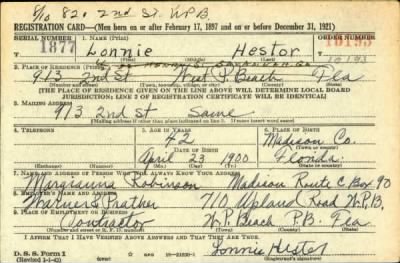 No 820 2nd St. W.P.B.
REGISTRATION CARD—(Men born on or after February 17, 1897 and on or before December 31, 1921)
SERIAL NUMBER 1. NAME (Print) ORDER NUMBER
1877 Lonnie Hestor 10193
(First) (Middle) (Last) 10193
2. PLACE OF RESIDENCE (Print)
913 2nd St West P. Beach Fla
(Number and street) (Town, township, village, or city) (County) (State)
[THE PLACE OF RESIDENCE GIVEN ON THE LINE ABOVE WILL DETERMINE LOCAL BOARD
JURISDICTION; LINE 2 OF REGISTRATION CERTIFICATE WILL BE IDENTICAL]
3. MAILING ADDRESS
913 2nd St. Same
[Mailing address if other than place indicated on line 2. If same insert word same]
4. TELEPHONE 5. AGE IN YEARS 6. PLACE OF BIRTH
42 Madison Co.
DATE OF BIRTH (Town or county)
April 23 1900 Florida
(Exchange) (Number) (Mo.) (Day) (Yr.) (State or country)
7. NAME AND ADDRESS OF PERSON WHO WILL ALWAYS KNOW YOUR ADDRESS
Margianna Robinson Madison Route C Box 90
8. EMPLOYER'S NAME AND ADDRESS
Warner Prather 710 Upland Road W.P.B.
9. PLACE OF EMPLOYMENT OR BUSINESS
Contractor W.P. Beach P.B. Fla
(Number and street or R. F. D. number) (Town) (County) (State)
I AFFIRM THAT I HAVE VERIFIED ABOVE ANSWERS AND THAT THEY ARE TRUE.
D. S. S. Form 1 Lonnie Hester
(Revised 1-1-42) (over) 16—21630-1 (Registrant's signature)